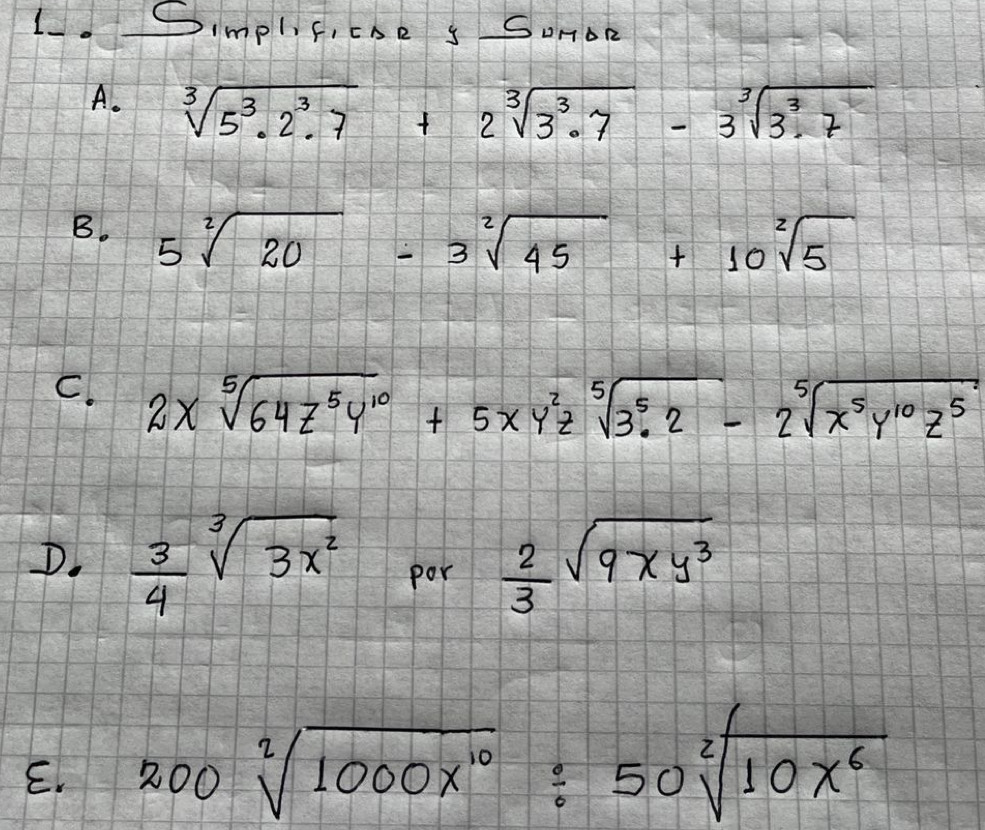 1-. Simplificar y Sumar
A. ∛(5³·2³·7) + 2∛(3³·7) - 3∛(3³·7)
B. 5 ²√20 - 3 ²√45 + 10 ²√5
C. 2x ⁵√(64z⁵y¹⁰) + 5xy²z ⁵√(3⁵·2) - 2 ⁵√(x⁵y¹⁰z⁵)
D. 3/4 ∛(3x²) por 2/3 √(9xy³)
E. 200 ²√(1000x¹⁰) ÷ 50 ²√(10x⁶)